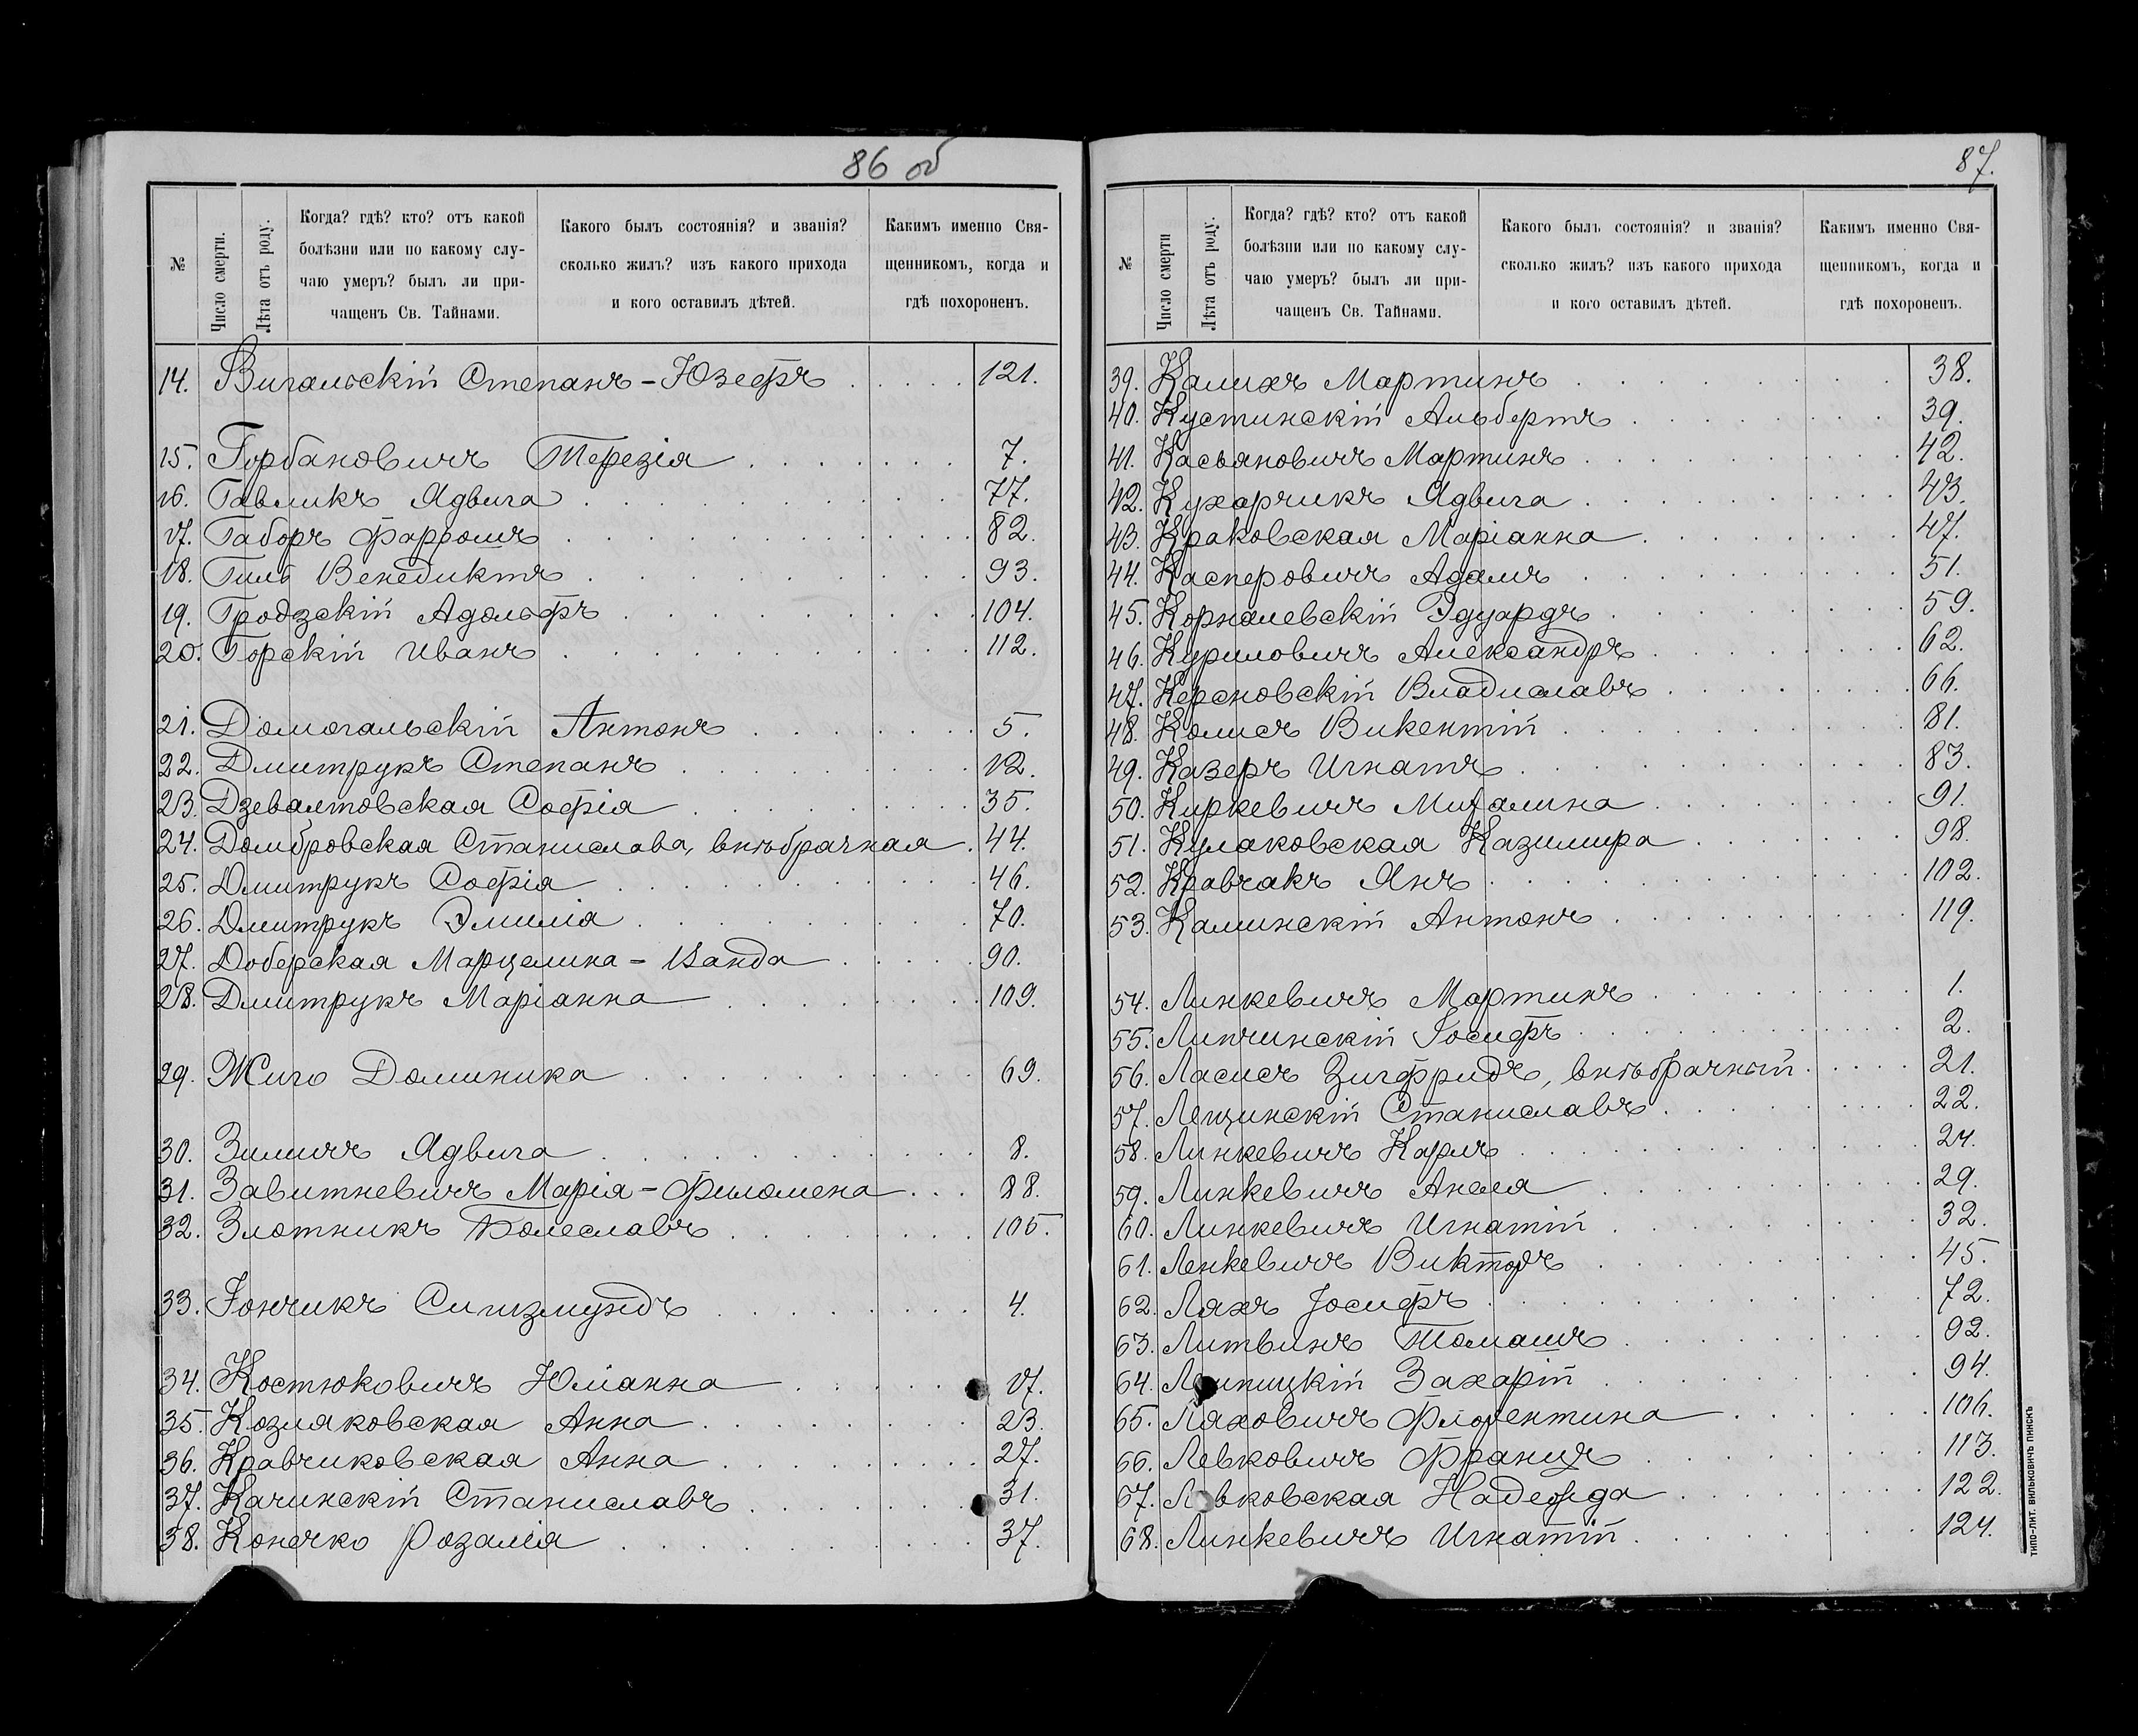 86 об
№
Число смерти.
Лѣта отъ роду.
Когда? гдѣ? кто? отъ какой
болѣзни или по какому слу-
чаю умеръ? былъ ли при-
чащенъ Св. Тайнами.
Какого былъ состоянія? и званія?
сколько жилъ? изъ какого прихода
и кого оставилъ дѣтей.
Какимъ именно Свя-
щенникомъ, когда и
гдѣ похороненъ.
14. Вигальскій Степанъ-Юзефъ 121.
15. Горбановичъ Терезія 7.
16. Гавликъ Ядвига 77.
17. Габоръ 82.
18. Гиль Венедиктъ 93.
19. Гродзскій Адольфъ 104.
20. Горскій Иванъ 112.
21. Домогальскій Антонъ 5.
22. Дмитрукъ Степанъ 12.
23. Дзевалтовская Софія 35.
24. Домбровская Станислава, внѣбрачная 44.
25. Дмитрукъ Софія 46.
26. Дмитрукъ Эмилія 70.
27. Доберская Марцелина-Ванда 90.
28. Дмитрукъ Маріанна 109.
29. Жиго Доминика 69.
30. Зиличъ Ядвига 8.
31. Завитневичъ Марія-Филомена 88.
32. Злотникъ Болеславъ 105.
33. Іончикъ Сигизмундъ 4.
34. Костюковичъ Юліанна 17.
35. Козляковская Анна 23.
36. Кравчиковская Анна 27.
37. Качинскій Станиславъ 31.
38. Конечко Розалія 37.
87.
№
Число смерти
Лѣта отъ роду.
Когда? гдѣ? кто? отъ какой
болѣзни или по какому слу-
чаю умеръ? былъ ли при-
чащенъ Св. Тайнами.
Какого былъ состоянія? и званія?
сколько жилъ? изъ какого прихода
и кого оставилъ дѣтей.
Какимъ именно Свя-
щенникомъ, когда и
гдѣ похороненъ.
39. Калихъ Мартинъ 38.
40. Кустинскій Альбертъ 39.
41. Касьяновичъ Мартинъ 42.
42. Кухарчикъ Ядвига 43.
43. Краковская Маріанна 47.
44. Касперовичъ Адамъ 51.
45. Корналевскій Эдуардъ 59.
46. Куриловичъ Александръ 62.
47. Керсновскій Владиславъ 66.
48. Колисъ Викентій 81.
49. Казеръ Игнатъ 83.
50. Киркевичъ Михалина 91.
51. Кулаковская Казимира 98.
52. Кравчакъ Янъ 102.
53. Каминскій Антонъ 119.
54. Линкевичъ Мартинъ 1.
55. Липчинскій Іосифъ 2.
56. Ласисъ Зигфридъ, внѣбрачный 21.
57. Лещинскій Станиславъ 22.
58. Линкевичъ Карлъ 24.
59. Линкевичъ Анеля 29.
60. Линкевичъ Игнатій 32.
61. Ленкевичъ Викторъ 45.
62. Ляхъ Іосифъ 72.
63. Литвинъ Томашъ 92.
64. Захарій 94.
65. Ляховичъ Флорентина 106.
66. Левковичъ Францъ 113.
67. Надежда 122.
68. Линкевичъ Игнатій 124.
ТИПО-ЛИТ. ВИЛЬКОВИЧЪ ПИНСКЪ